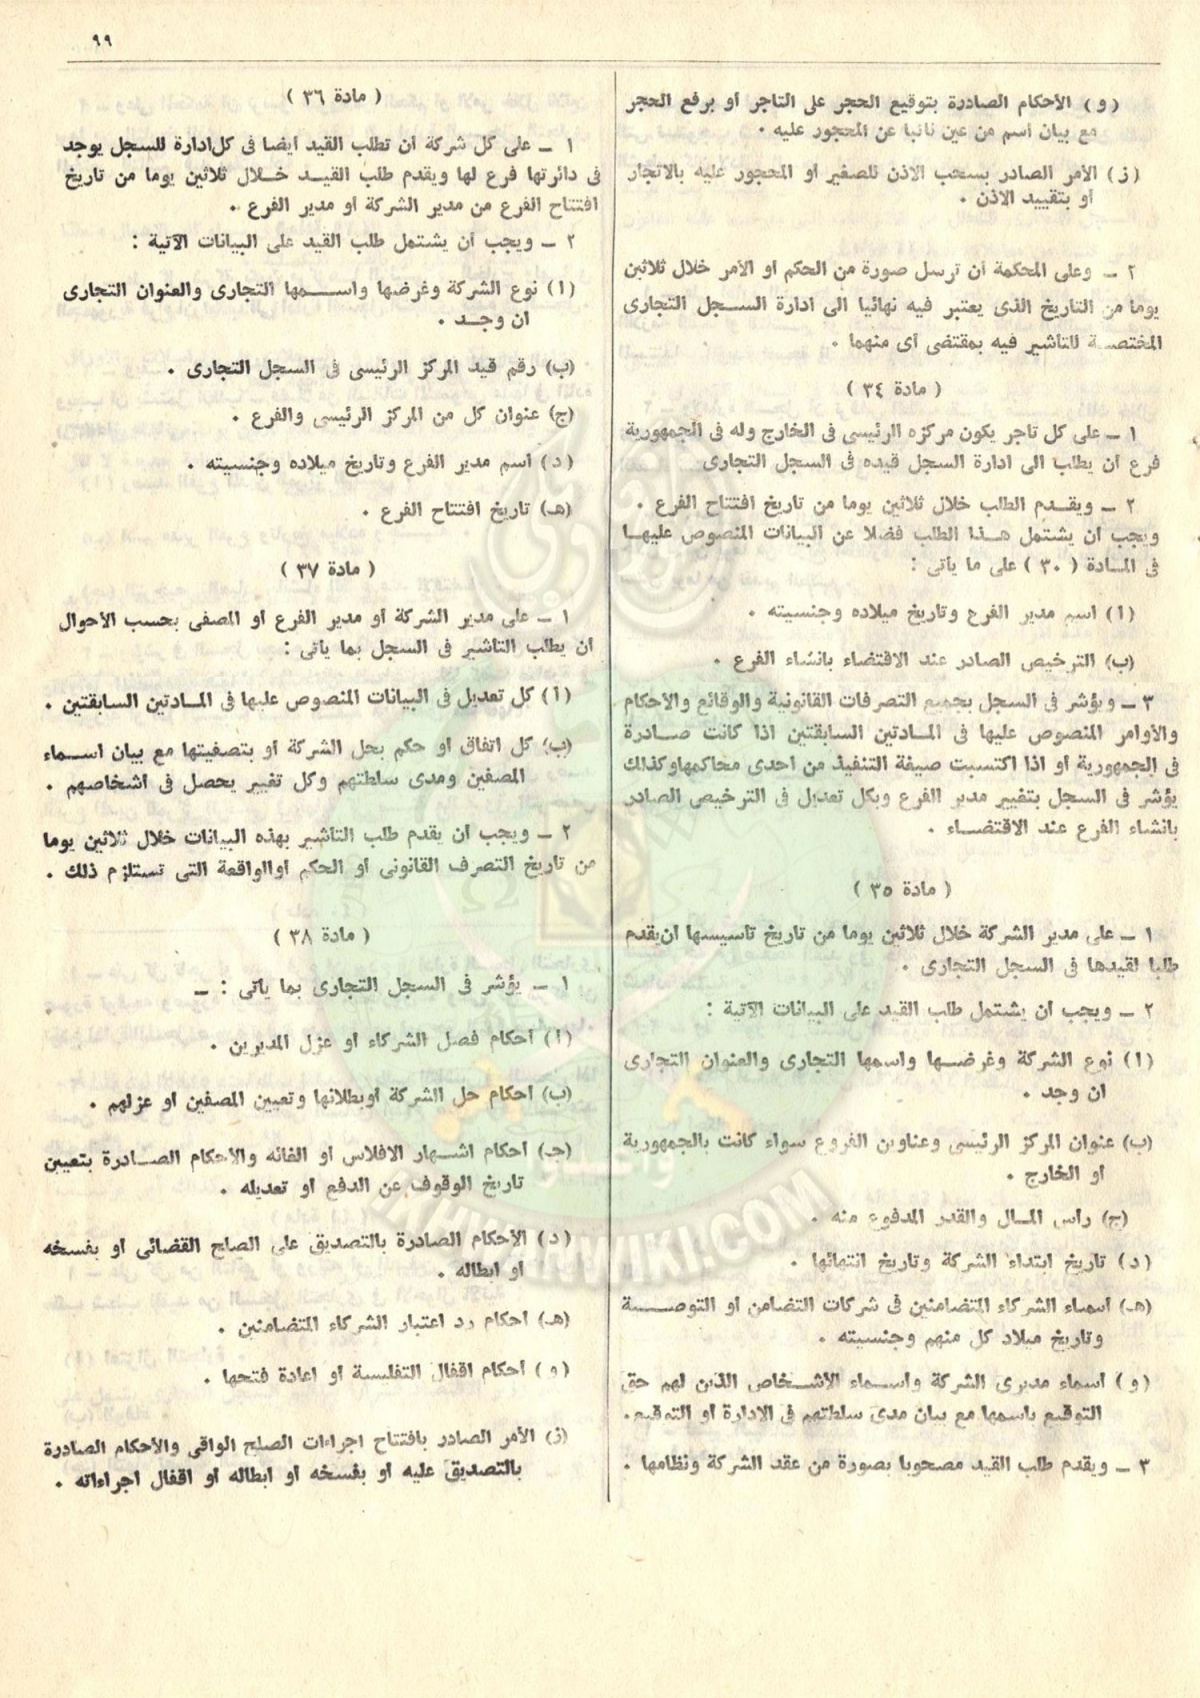 ٩٩
( و ) الأحكام الصادرة بتوقيع الحجر على التاجر أو برفع الحجر
مع بيان اسم من عين نائبا عن المحجور عليه .
( ز ) الأمر الصادر بسحب الاذن للصغير أو المحجور عليه بالاتجار
أو بتقييد الاذن .
٢ – وعلى المحكمة أن ترسل صورة من الحكم أو الأمر خلال ثلاثين
يوما من التاريخ الذى يعتبر فيه نهائيا الى ادارة السجل التجارى
المختصة للتأشير فيه بمقتضى أى منهما .
( مادة ٣٤ )
١ – على كل تاجر يكون مركزه الرئيسى فى الخارج وله فى الجمهورية
فرع أن يطلب الى ادارة السجل قيده فى السجل التجارى
٢ – ويقدم الطلب خلال ثلاثين يوما من تاريخ افتتاح الفرع .
ويجب أن يشتمل هذا الطلب فضلا عن البيانات المنصوص عليها
فى المادة ( ٣٠ ) على ما يأتى :
( أ ) اسم مدير الفرع وتاريخ ميلاده وجنسيته .
(ب) الترخيص الصادر عند الاقتضاء بانشاء الفرع .
٣ – ويؤشر فى السجل بجميع التصرفات القانونية والوقائع والأحكام
والأوامر المنصوص عليها فى المادتين السابقتين اذا كانت صادرة
فى الجمهورية أو اذا اكتسبت صيغة التنفيذ من احدى محاكمها وكذلك
يؤشر فى السجل بتغيير مدير الفرع وبكل تعديل فى الترخيص الصادر
بانشاء الفرع عند الاقتضاء .
( مادة ٣٥ )
١ – على مدير الشركة خلال ثلاثين يوما من تاريخ تأسيسها أن يقدم
طلبا لقيدها فى السجل التجارى .
٢ – ويجب أن يشتمل طلب القيد على البيانات الآتية :
( أ ) نوع الشركة وغرضها واسمها التجارى والعنوان التجارى
ان وجد .
(ب) عنوان المركز الرئيسى وعناوين الفروع سواء كانت بالجمهورية
أو الخارج .
(ج) رأس المال والقدر المدفوع منه .
( د ) تاريخ ابتداء الشركة وتاريخ انتهائها .
(هـ) أسماء الشركاء المتضامنين فى شركات التضامن أو التوصية
وتاريخ ميلاد كل منهم وجنسيته .
( و ) أسماء مديرى الشركة وأسماء الأشخاص الذين لهم حق
التوقيع باسمها مع بيان مدى سلطتهم فى الادارة أو التوقيع .
٣ – ويقدم طلب القيد مصحوبا بصورة من عقد الشركة ونظامها .
( مادة ٣٦ )
١ – على كل شركة أن تطلب القيد أيضا فى كل ادارة للسجل يوجد
فى دائرتها فرع لها ويقدم طلب القيد خلال ثلاثين يوما من تاريخ
افتتاح الفرع من مدير الشركة أو مدير الفرع .
٢ – ويجب أن يشتمل طلب القيد على البيانات الآتية :
( أ ) نوع الشركة وغرضها واسمها التجارى والعنوان التجارى
ان وجد .
(ب) رقم قيد المركز الرئيسى فى السجل التجارى .
(ج) عنوان كل من المركز الرئيسى والفرع .
( د ) اسم مدير الفرع وتاريخ ميلاده وجنسيته .
(هـ) تاريخ افتتاح الفرع .
( مادة ٣٧ )
١ – على مدير الشركة أو مدير الفرع أو المصفى بحسب الأحوال
أن يطلب التأشير فى السجل بما يأتى :
( أ ) كل تعديل فى البيانات المنصوص عليها فى المادتين السابقتين .
(ب) كل اتفاق أو حكم بحل الشركة أو بتصفيتها مع بيان أسماء
المصفين ومدى سلطتهم وكل تغيير يحصل فى أشخاصهم .
٢ – ويجب أن يقدم طلب التأشير بهذه البيانات خلال ثلاثين يوما
من تاريخ التصرف القانونى أو الحكم أو الواقعة التى تستلزم ذلك .
( مادة ٣٨ )
١ – يؤشر فى السجل التجارى بما يأتى : –
( أ ) أحكام فصل الشركاء أو عزل المديرين .
(ب) أحكام حل الشركة أو بطلانها وتعيين المصفين أو عزلهم .
(جـ) أحكام اشهار الافلاس أو الغائه والأحكام الصادرة بتعيين
تاريخ الوقوف عن الدفع أو تعديله .
( د ) الأحكام الصادرة بالتصديق على الصلح القضائى أو بفسخه
أو ابطاله .
(هـ) أحكام رد اعتبار الشركاء المتضامنين .
( و ) أحكام اقفال التفليسة أو اعادة فتحها .
( ز ) الأمر الصادر بافتتاح اجراءات الصلح الواقى والأحكام الصادرة
بالتصديق عليه أو بفسخه أو ابطاله أو اقفال اجراءاته .
IKHWANWIKI.COM